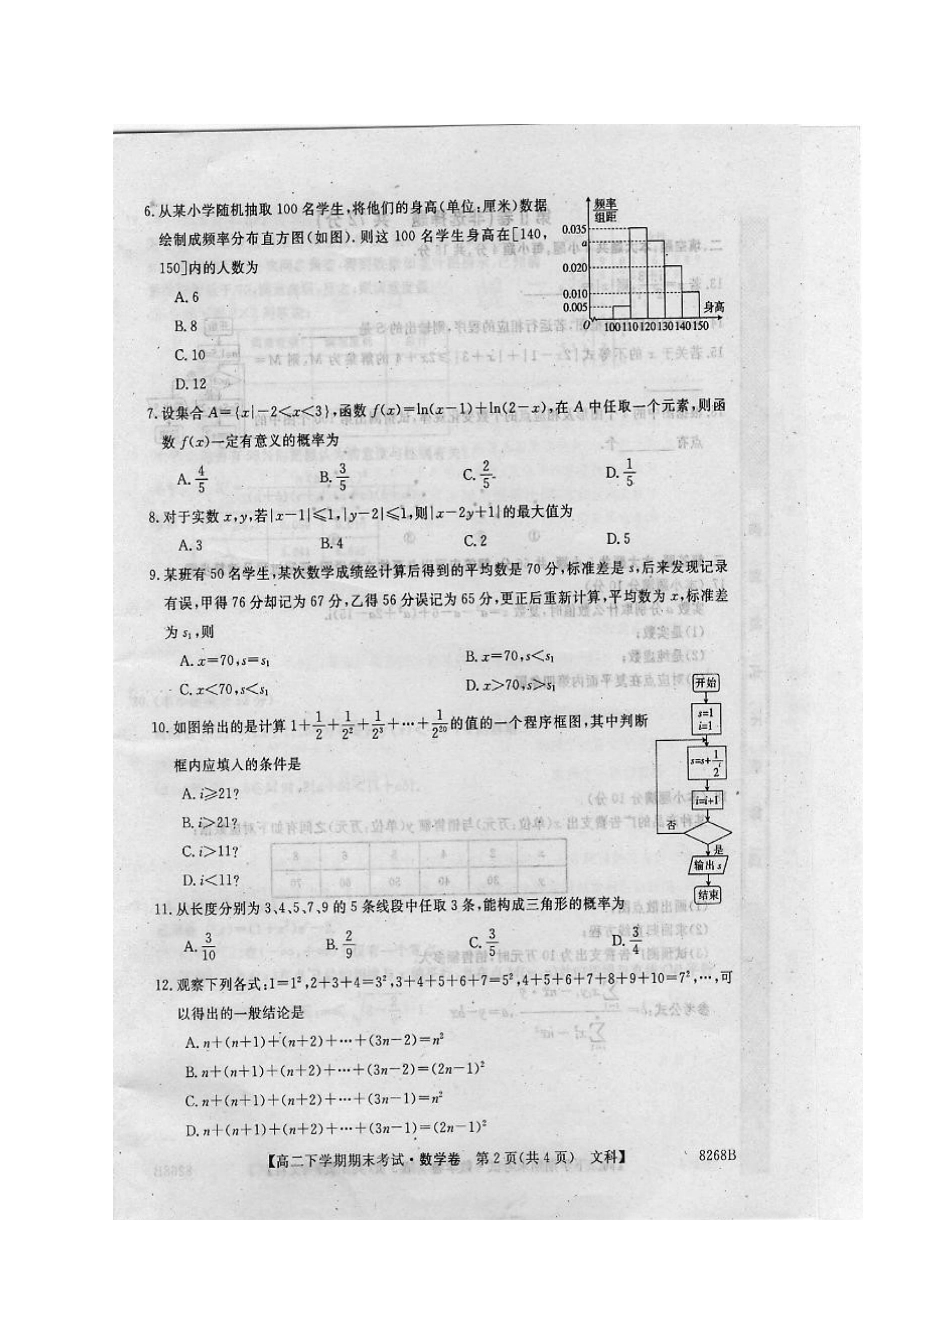 6.从某小学随机抽取 100 名学生,将他们的身高(单位:厘米)数据
绘制成频率分布直方图(如图).则这 100 名学生身高在[140,
150]内的人数为
A.6
B.8
C.10
D.12
频率
组距
0.035
a
0.020
0.010
0.005
O
100 110 120 130 140 150
身高
7.设集合 A={x|-2<x<3},函数 f(x)=ln(x-1)+ln(2-x),在 A 中任取一个元素,则函
数 f(x)一定有意义的概率为
A.4/5 B.3/5 C.2/5 D.1/5
8.对于实数 x,y,若|x-1|≤1,|y-2|≤1,则|x-2y+1|的最大值为
A.3 B.4 C.2 D.5
9.某班有 50 名学生,某次数学成绩经计算后得到的平均数是 70 分,标准差是 s,后来发现记录
有误,甲得 76 分却记为 67 分,乙得 56 分误记为 65 分,更正后重新计算,平均数为 x,标准差
为 s₁,则
A.x=70,s=s₁ B.x=70,s<s₁
C.x<70,s<s₁ D.x>70,s>s₁
10.如图给出的是计算 1+1/2+1/2²+1/2³+…+1/2²⁰的值的一个程序框图,其中判断
框内应填入的条件是
A.i≥21?
B.i>21?
C.i>11?
D.i<11?
开始
s=1
i=1
s=s+1/2ⁱ
i=i+1
否
是
输出 s
结束
11.从长度分别为 3、4、5、7、9 的 5 条线段中任取 3 条,能构成三角形的概率为
A.3/10 B.2/9 C.3/5 D.3/4
12.观察下列各式:1=1²,2+3+4=3²,3+4+5+6+7=5²,4+5+6+7+8+9+10=7²,…,可
以得出的一般结论是
A.n+(n+1)+(n+2)+…+(3n-2)=n²
B.n+(n+1)+(n+2)+…+(3n-2)=(2n-1)²
C.n+(n+1)+(n+2)+…+(3n-1)=n²
D.n+(n+1)+(n+2)+…+(3n-1)=(2n-1)²
【高二下学期期末考试·数学卷 第 2 页(共 4 页) 文科】 8268B